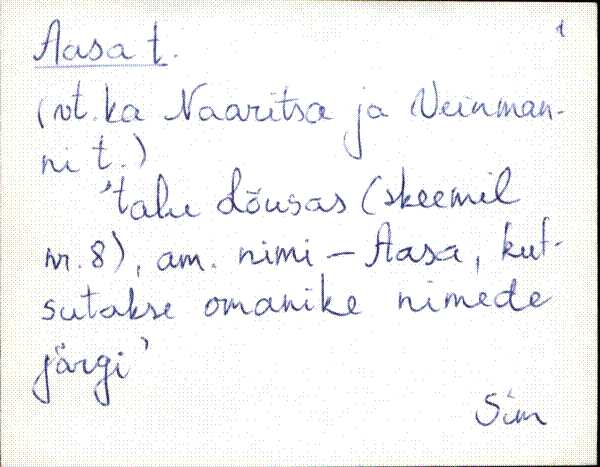 1
Aasa t.
(vt. ka Naaritsa ja Veinman-
ni t.)
'talu Lõusas (skeemil
nr. 8), am. nimi – Aasa, kut-
sutakse omanike nimede
järgi'
Sim